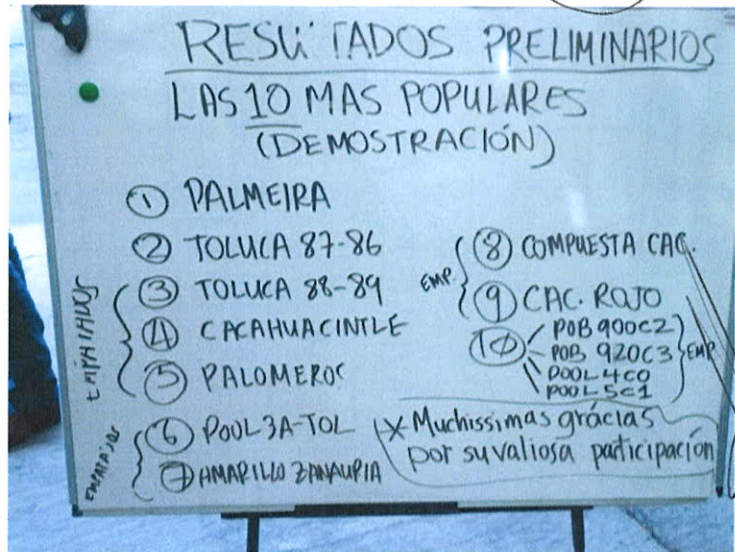 RESULTADOS PRELIMINARIOS
LAS 10 MAS POPULARES
(DEMOSTRACIÓN)
① PALMEIRA
② TOLUCA 87-86
EMPATADOS
③ TOLUCA 88-89
④ CACAHUACINTLE
⑤ PALOMEROS
EMPATADOS
⑥ POOL 3A-TOL
⑦ AMARILLO ZANAUPIA
EMP.
⑧ COMPUESTA CAC.
⑨ CAC. ROJO
⑩ POB 900C2
POB 920C3
POOL 4C0
POOL 5C1
EMP
* Muchissimas grácias
por su valiosa participación